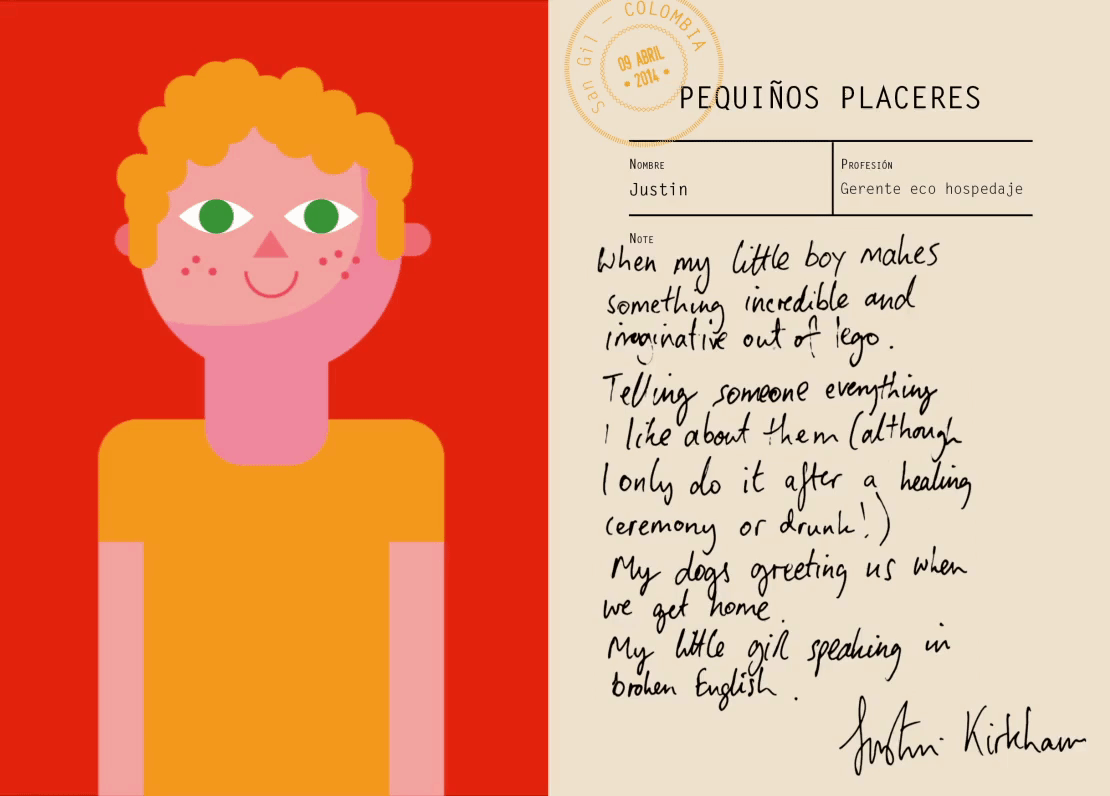 San Gil – COLOMBIA
09 ABRIL
• 2014 •
PEQUIÑOS PLACERES
Nombre
Justin
Profesión
Gerente eco hospedaje
Note
When my little boy makes
something incredible and
imaginative out of lego.
Telling someone everything
I like about them (although
I only do it after a healing
ceremony or drunk!)
My dogs greeting us when
we get home.
My little girl speaking in
broken English.
Justin Kirkham